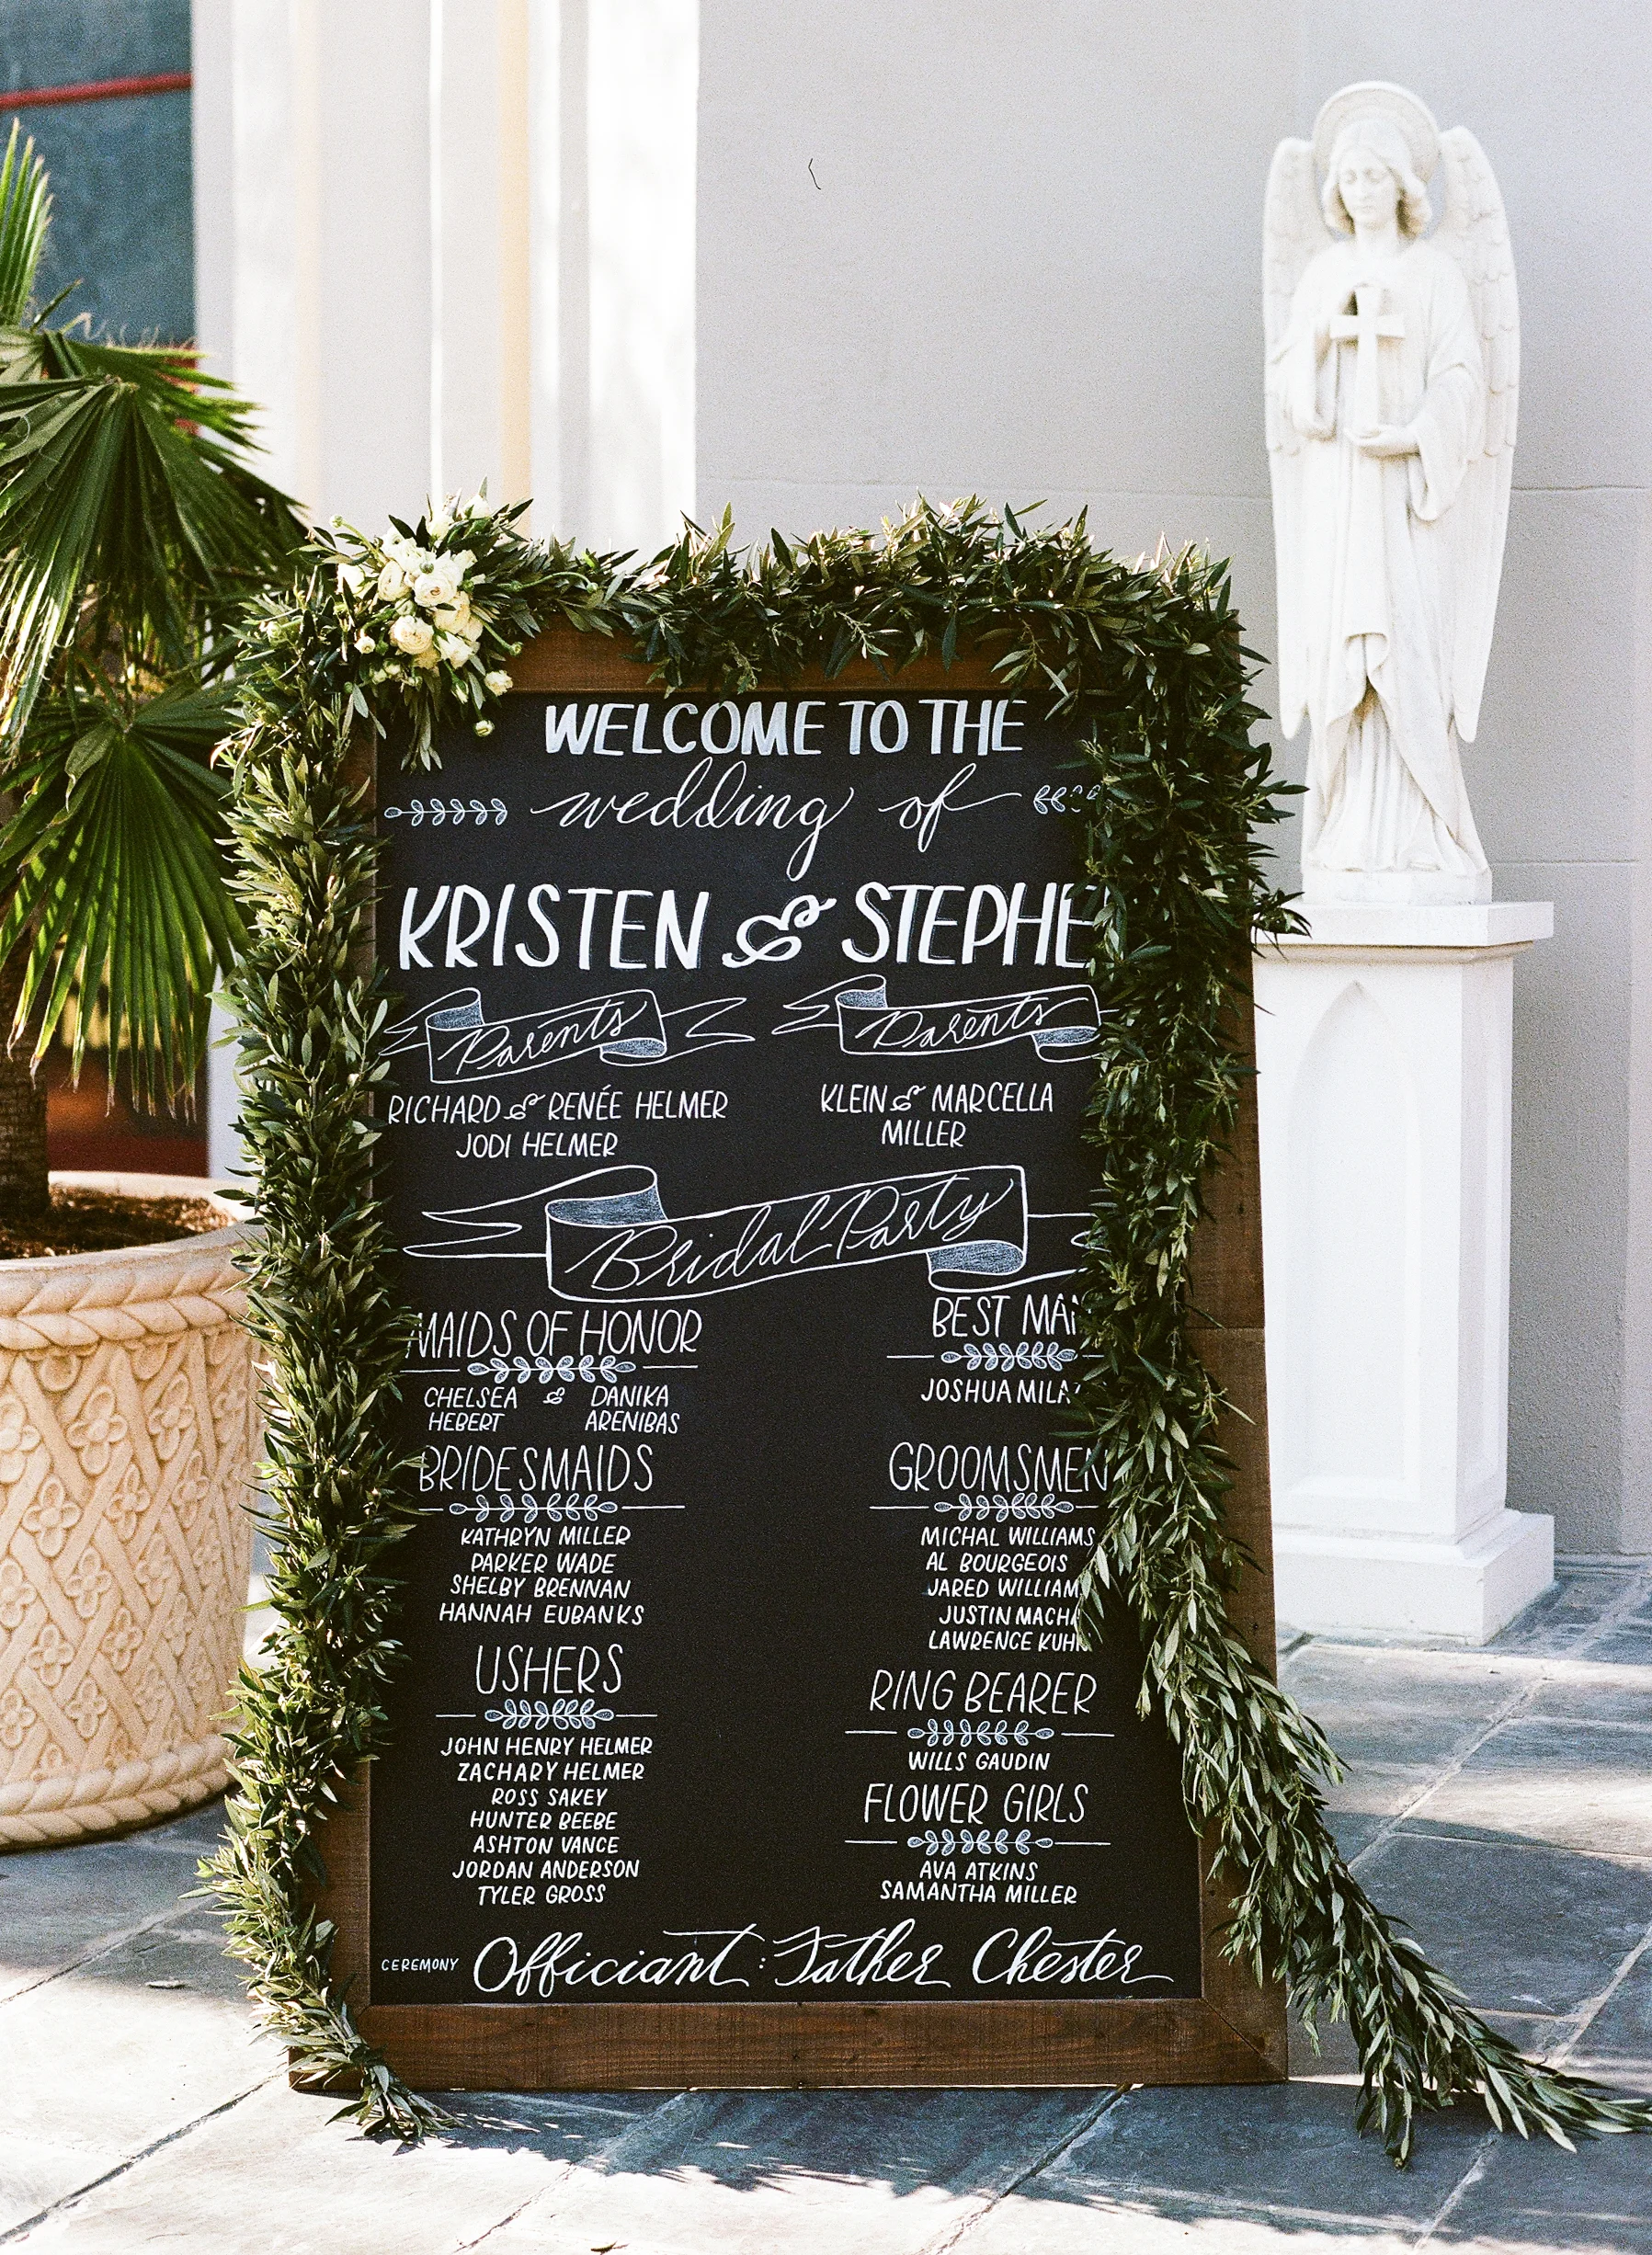 WELCOME TO THE
wedding of
KRISTEN & STEPHE
Parents
Parents
RICHARD & RENÉE HELMER
JODI HELMER
KLEIN & MARCELLA
MILLER
Bridal Party
MAIDS OF HONOR
CHELSEA & DANIKA
HEBERT ARENIBAS
BRIDESMAIDS
KATHRYN MILLER
PARKER WADE
SHELBY BRENNAN
HANNAH EUBANKS
USHERS
JOHN HENRY HELMER
ZACHARY HELMER
ROSS SAKEY
HUNTER BEEBE
ASHTON VANCE
JORDAN ANDERSON
TYLER GROSS
BEST MAN
JOSHUA
GROOMSMEN
MICHAL WILLIAMS
AL BOURGEOIS
JARED WILLIAM
JUSTIN
LAWRENCE KUHN
RING BEARER
WILLS GAUDIN
FLOWER GIRLS
AVA ATKINS
SAMANTHA MILLER
CEREMONY Officiant: Father Chester